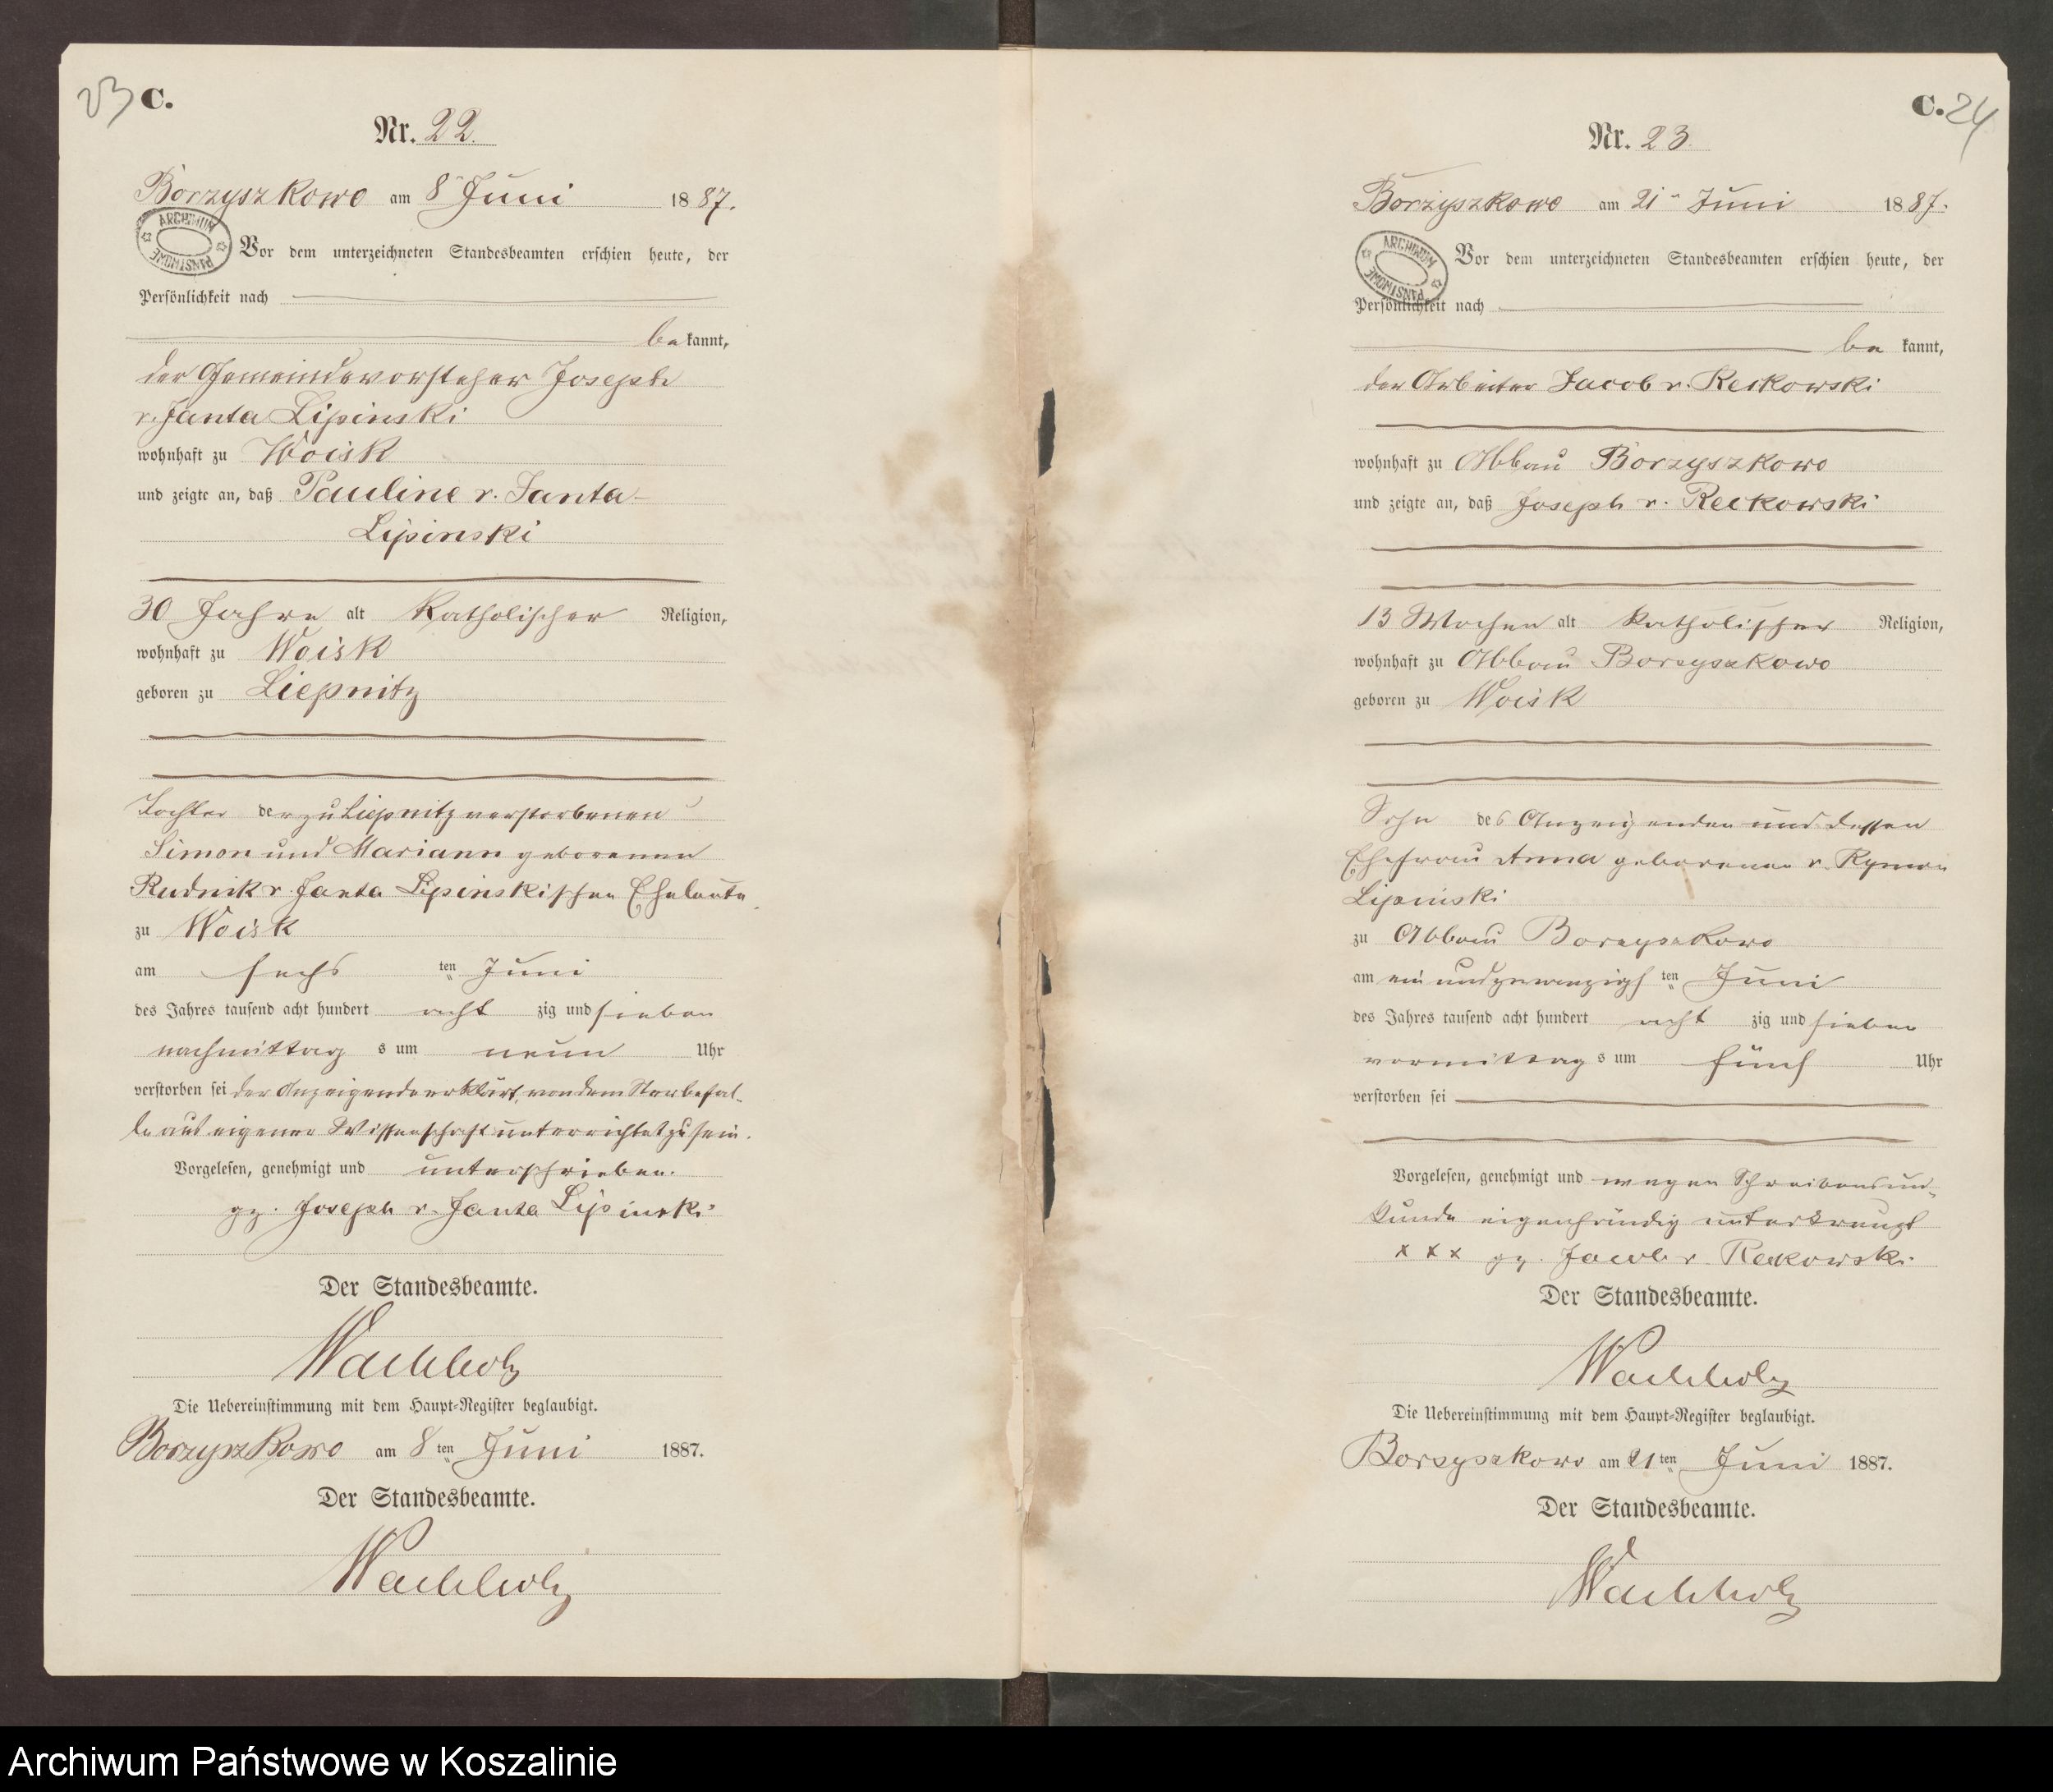 23 C.
Nr. 22.
Borzyszkowo am 8 Juni 1887.
ARCHIWUM PAŃSTWOWE
Vor dem unterzeichneten Standesbeamten erschien heute, der
Persönlichkeit nach
bekannt,
der Gemeindevorsteher Joseph
v. Janta Lipinski
wohnhaft zu Woisk
und zeigte an, daß Pauline v. Janta-
Lipinski
30 Jahre alt Katholischer Religion,
wohnhaft zu Woisk
geboren zu Liepnitz
Tochter der zu Liepnitz verstorbenen
Simon und Mariann geborenen
Rudnik v. Janta Lipinskischen Eheleute
zu Woisk
am sechsten Juni
des Jahres tausend acht hundert achtzig und sieben
nachmittags um neun Uhr
verstorben sei der Anzeigende erklärt, von dem Sterbefal-
le aus eigener Wissenschaft unterrichtet zu sein.
Vorgelesen, genehmigt und unterschrieben.
gz. Joseph v. Janta Lipinski
Der Standesbeamte.
Wachholz
Die Uebereinstimmung mit dem Haupt-Register beglaubigt.
Borzyszkowo am 8ten Juni 1887.
Der Standesbeamte.
Wachholz
C. 24
Nr. 23.
Borzyszkowo am 21 Juni 1887.
ARCHIWUM PAŃSTWOWE
Vor dem unterzeichneten Standesbeamten erschien heute, der
Persönlichkeit nach
bekannt,
der Arbeiter Jacob v. Reckowski
wohnhaft zu Abbau Borzyszkowo
und zeigte an, daß Joseph v. Reckowski
13 Wochen alt katholischer Religion,
wohnhaft zu Abbau Borzyszkowo
geboren zu Woisk
Sohn des Anzeigenden und dessen
Ehefrau Anna geborenen v. Rymon
Lipinski
zu Abbau Borzyszkowo
am ein und zwanzigsten Juni
des Jahres tausend acht hundert achtzig und sieben
vormittags um fünf Uhr
verstorben sei
Vorgelesen, genehmigt und wegen Schreibensun-
kunde eigenhändig unterkreuzt
x x x gz. Jacob v. Reckowski
Der Standesbeamte.
Wachholz
Die Uebereinstimmung mit dem Haupt-Register beglaubigt.
Borzyszkowo am 21ten Juni 1887.
Der Standesbeamte.
Wachholz
Archiwum Państwowe w Koszalinie